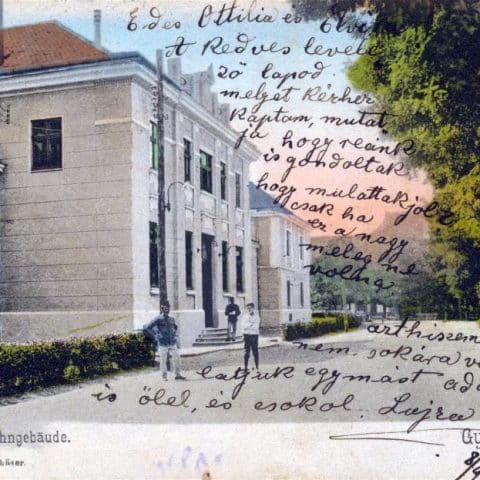 Édes Ottilia és Elvi
A Kedves levele
ző lapod
melyet
kaptam, mutat
ja hogy reánk
is gondoltak
hogy mulattak jól
csak ha
ez a nagy
meleg ne
volna
nem sokára
látjuk egymást add
is ölel, és csokol. Lujza
hngebäude.
Gy
häser.